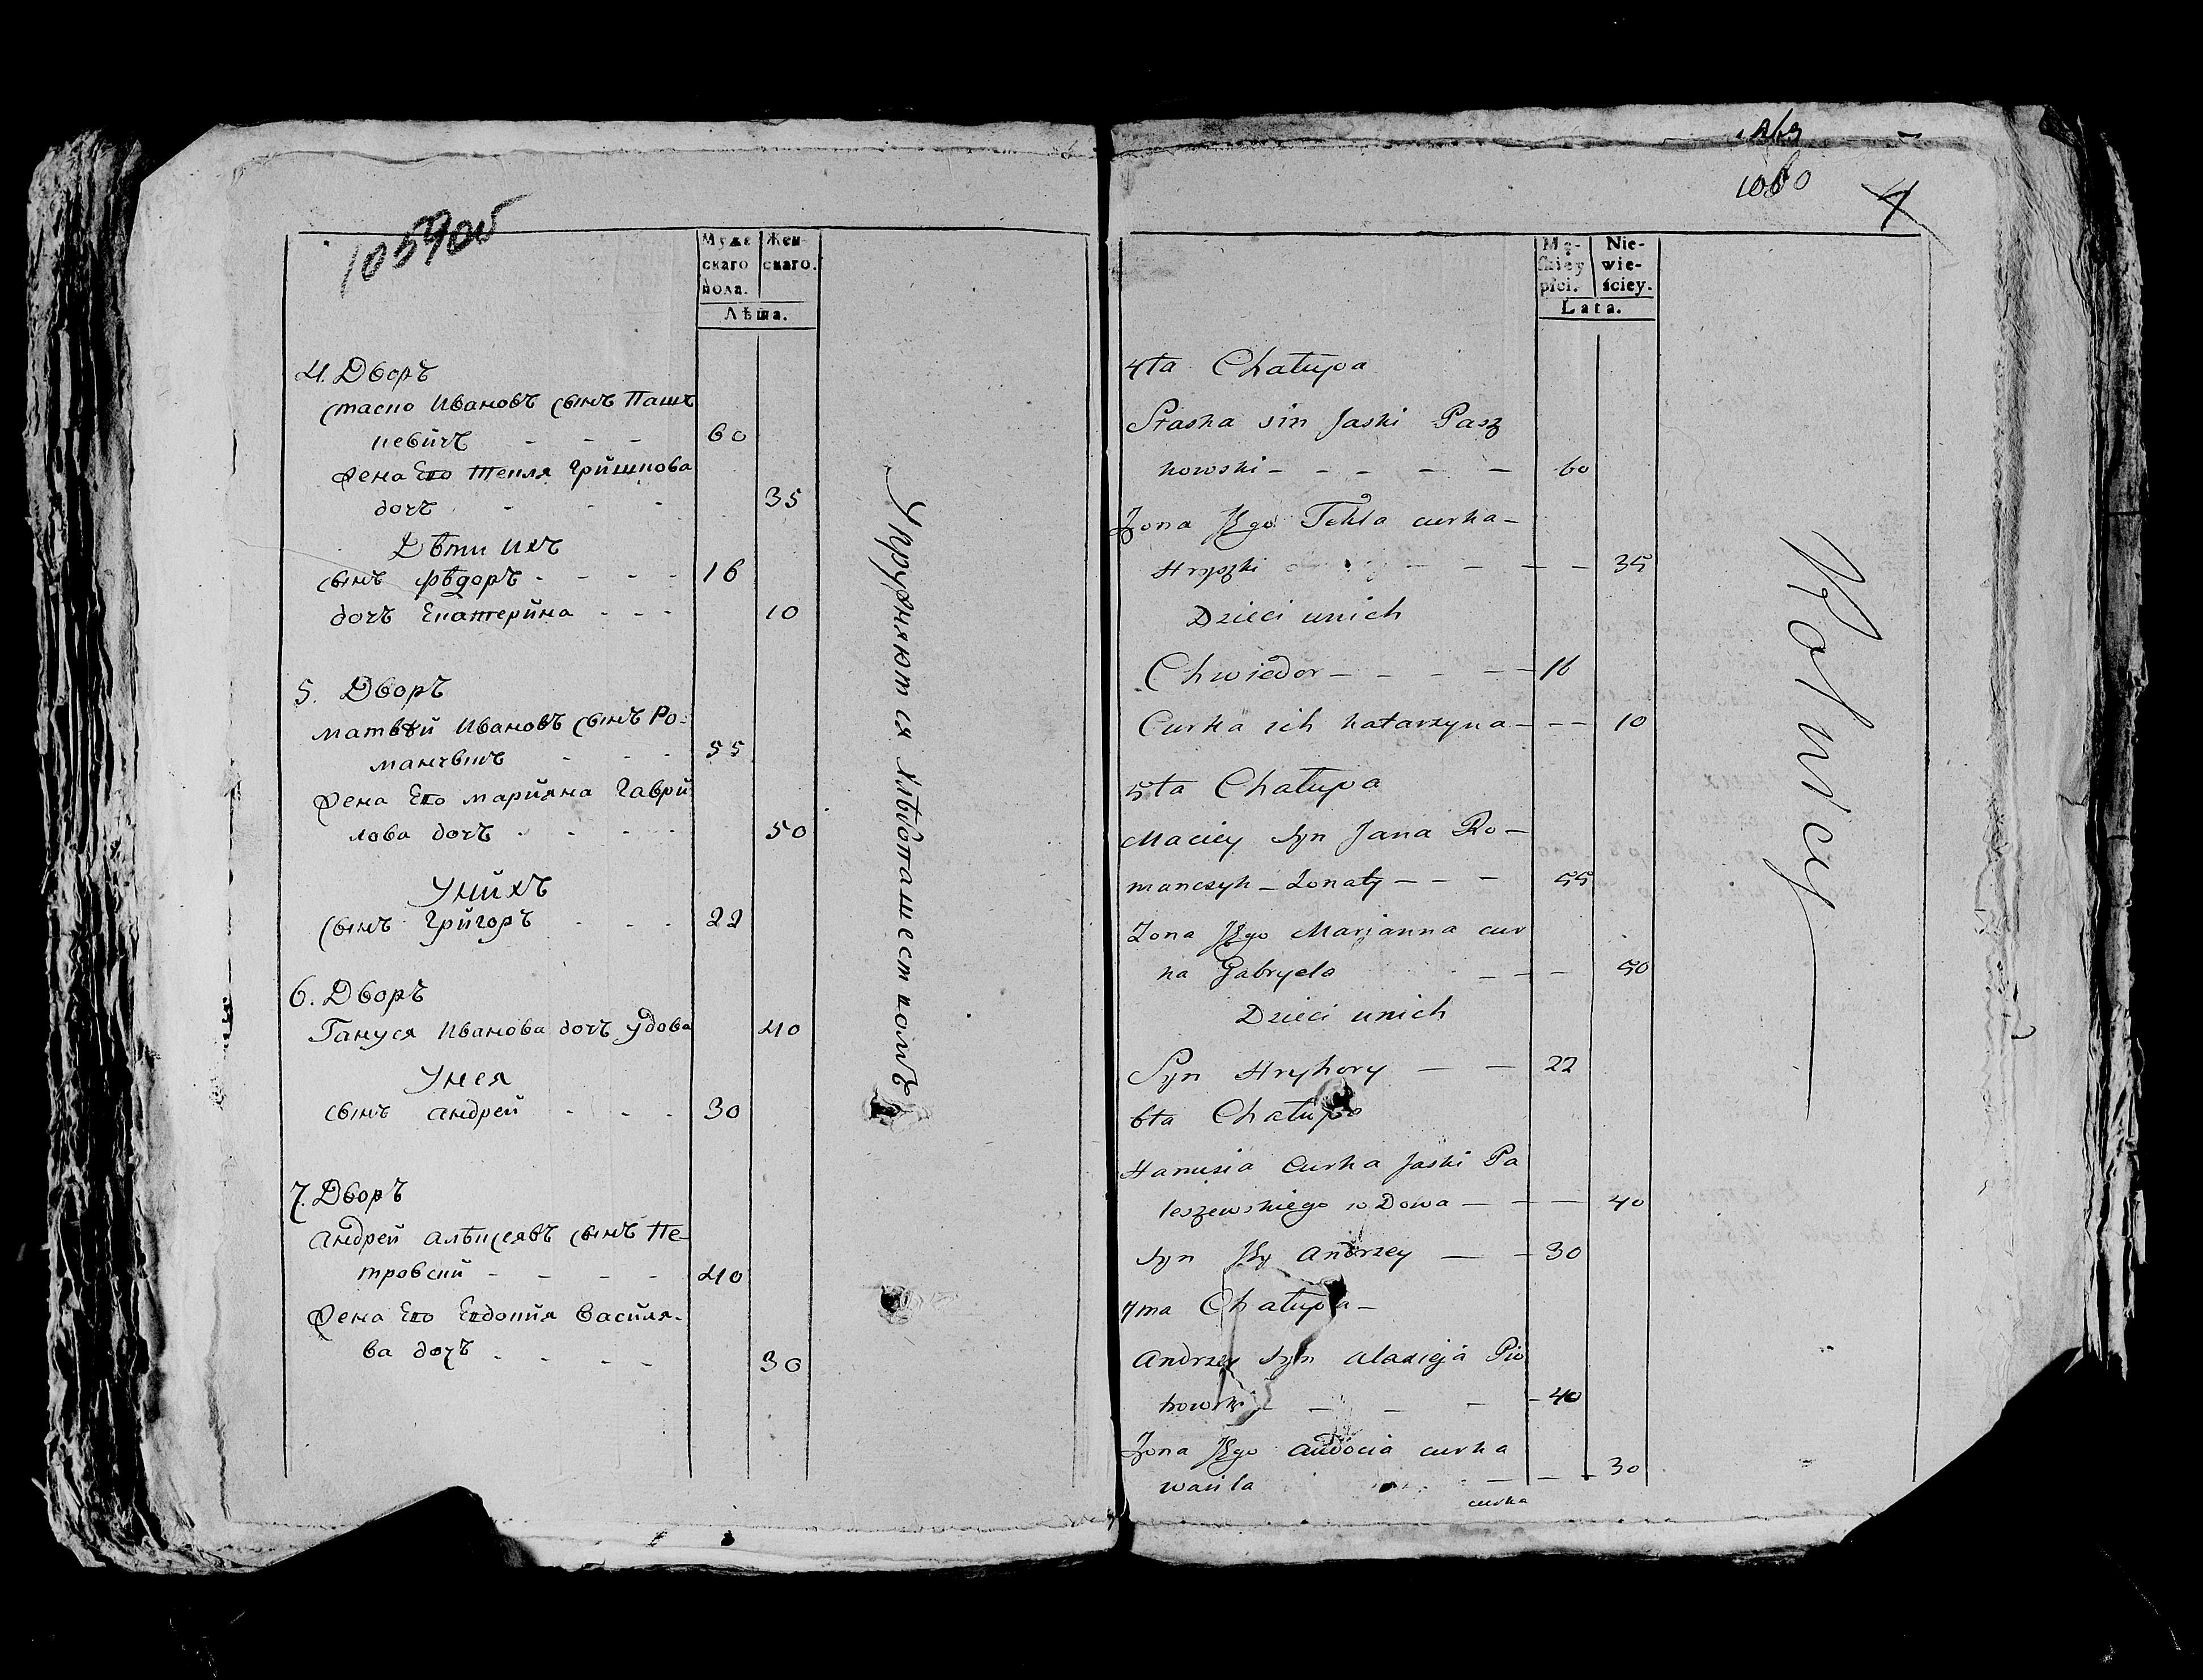 10590об
Муже
скаго
пола.
Жен-
скаго.
Лѣта.
4. Дворъ
стаспо Ивановъ сынъ Пашъ
певичъ - - - 60
Жена Его Текля Гришкова
дочъ - - - 35
Дѣти Ихъ
сынъ Фѣдоръ - - - - 16
дочъ Екатерина - - - 10
5. Дворъ
матвѣй Ивановъ сынъ Ро-
манчвичъ - - - 55
Жена Его марияна Гаври
лова дочъ - - - - 50
Унихъ
сынъ Григоръ - - - 22
6. Дворъ
Гануся Иванова дочъ удова 40
Унея
сынъ андрей - - - 30
7. Дворъ
андрей алѣксеявъ сынъ Пе-
тровский - - - - 40
Жена Его Евдокия Василя-
ва дочъ - - - - 30
Упружняются хлѣбопашествомъ
1060
4
Mę-
skiey
płci.
Nie-
wie-
ściey.
Lata.
4ta Chałupa
Staska sin Jaski Pasz
kowski - - - - - 60
Zona Jego Tekla curka -
Hryszki - - - 35
Dzieci unich
Chwiedor - - - - - 16
Curka ich katarzyna - - - 10
5ta Chałupa
Maciey syn Jana Ro -
manczyk - Zonaty - - - 55
Zona Jego Marjanna cur
ka Gabryela - - - 50
Dzieci unich
Syn Hryhory - - 22
6ta Chałupa
Hanusia Curka Jaski Pa
leszewskiego w Dowa - - - 40
Syn Jey Andrzey - - 30
7ma Chałupa -
Andrzey Syn Alaxieja Pio
trowski - - - - - 40
Zona Jego Audocia curka
wasila - - - 30
curka
Rolnicy